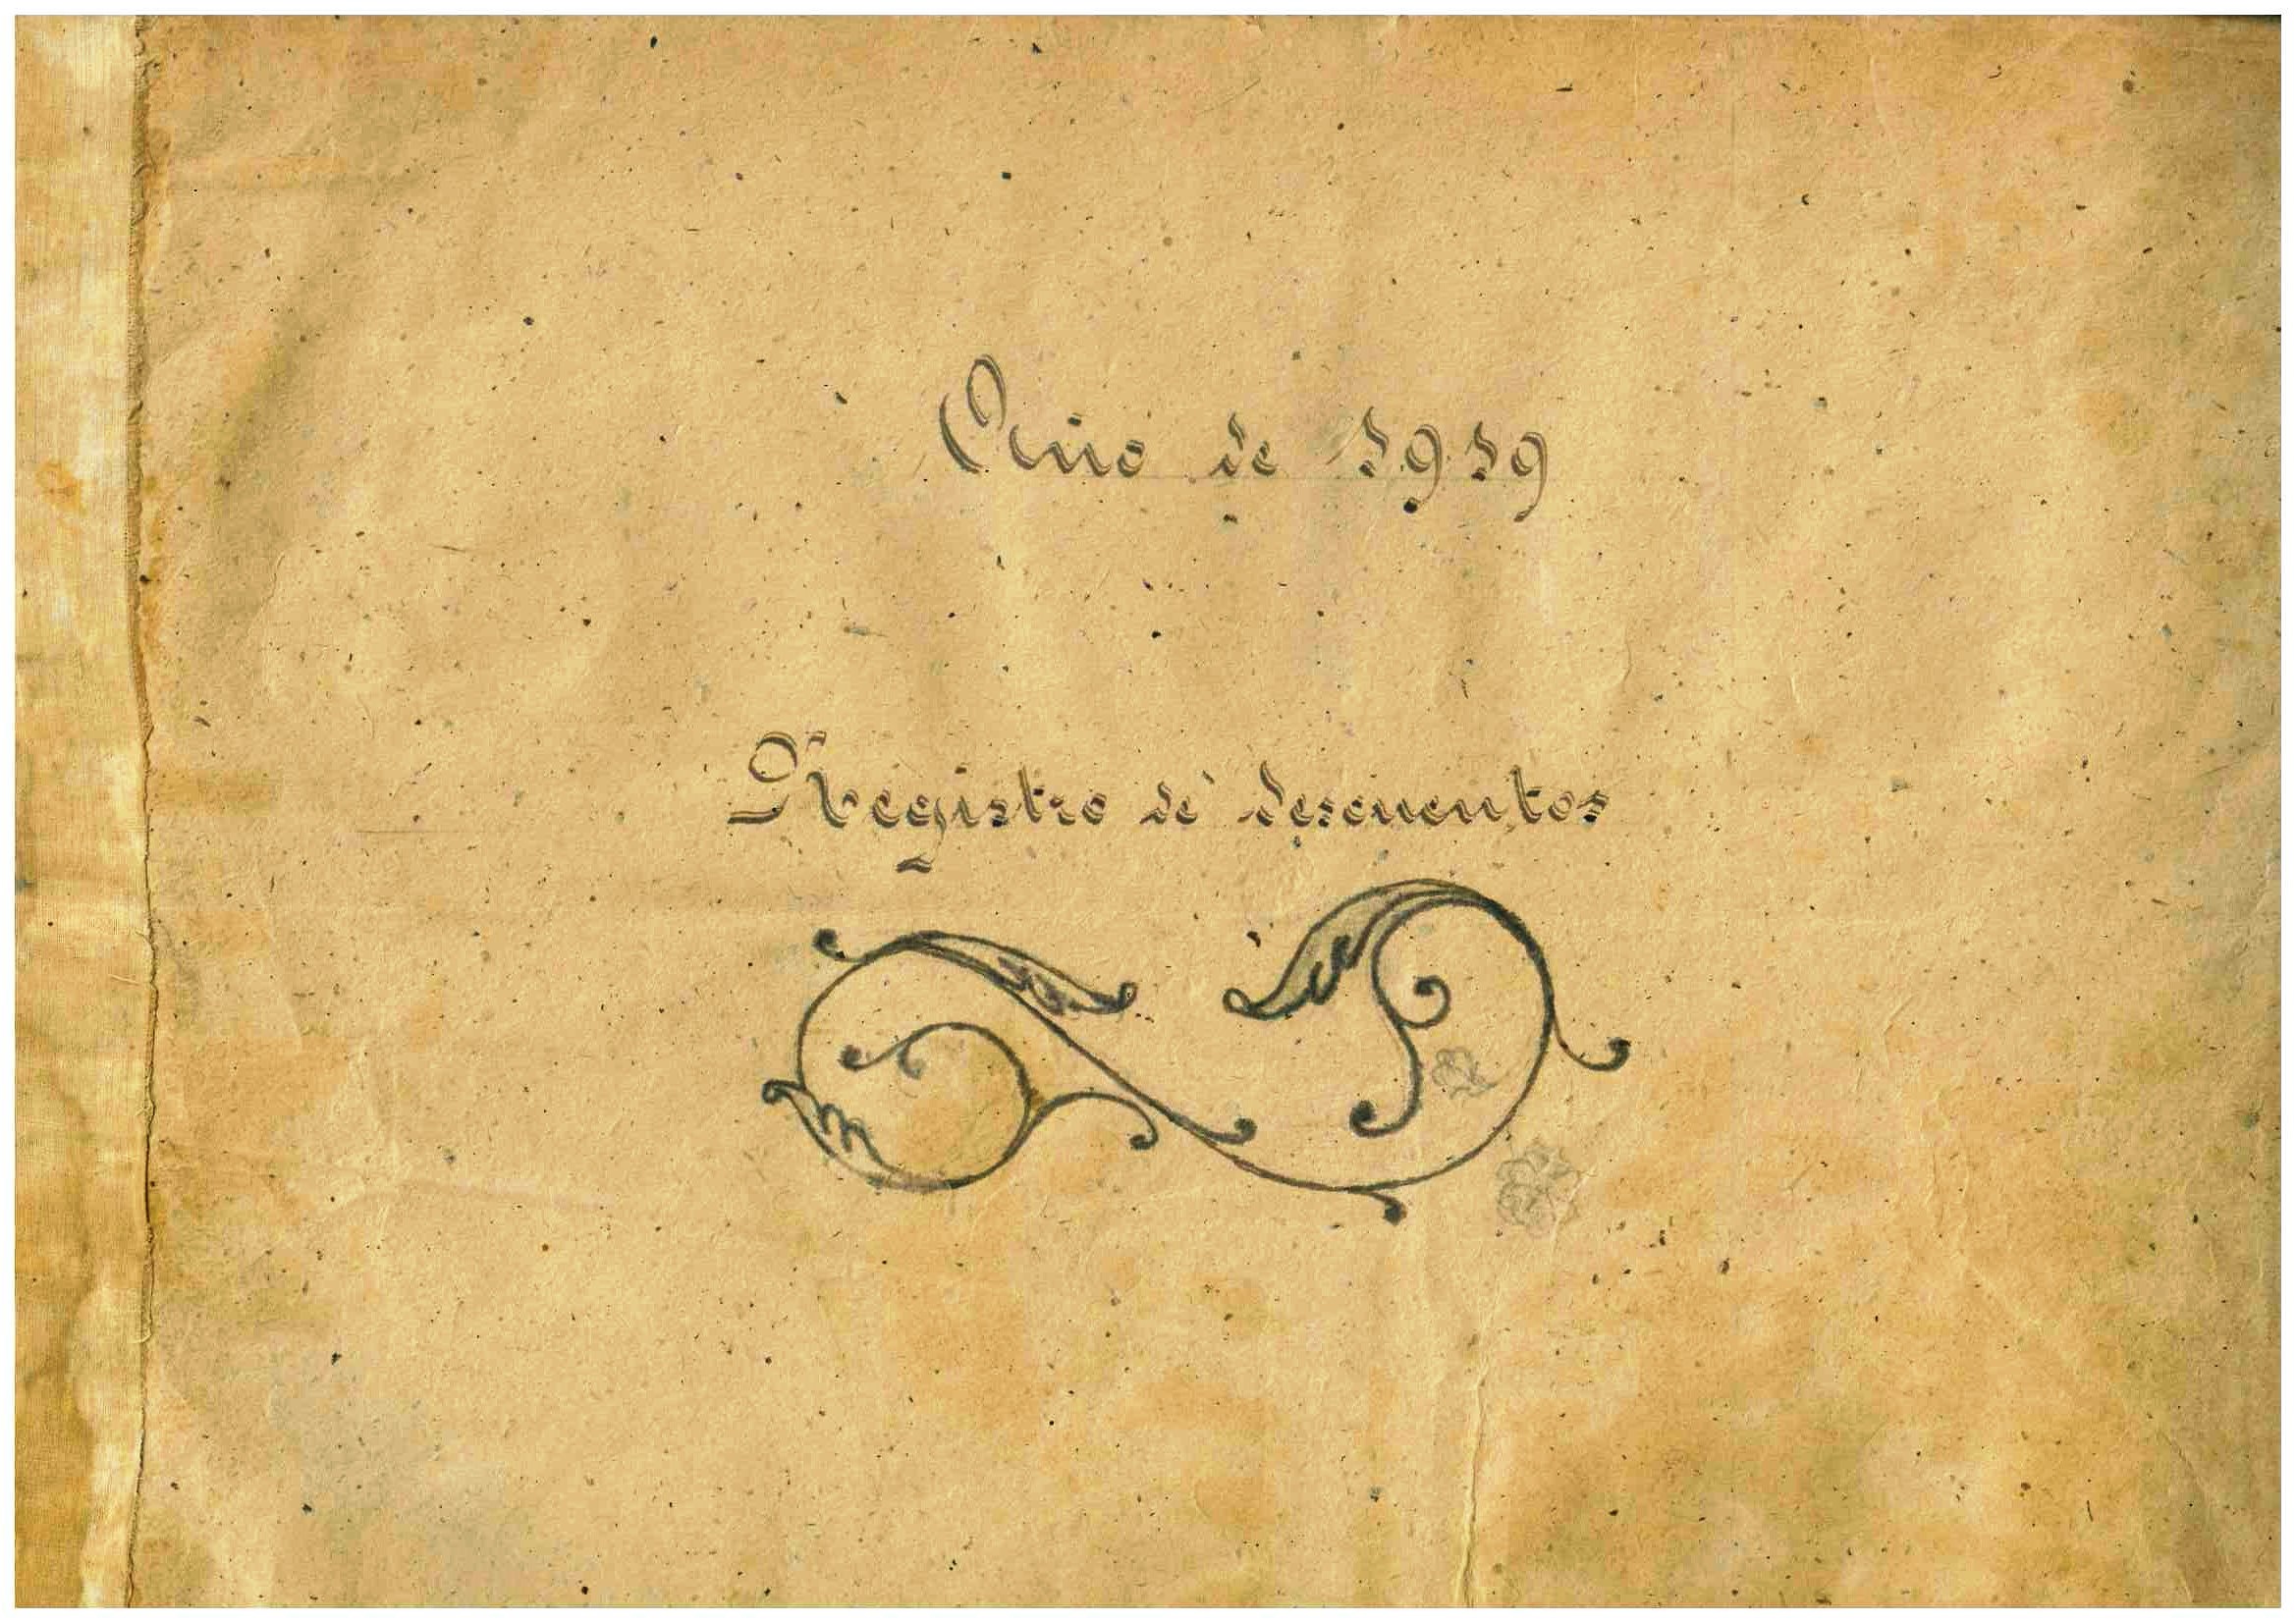 Año de 1919
Registro de descuentos